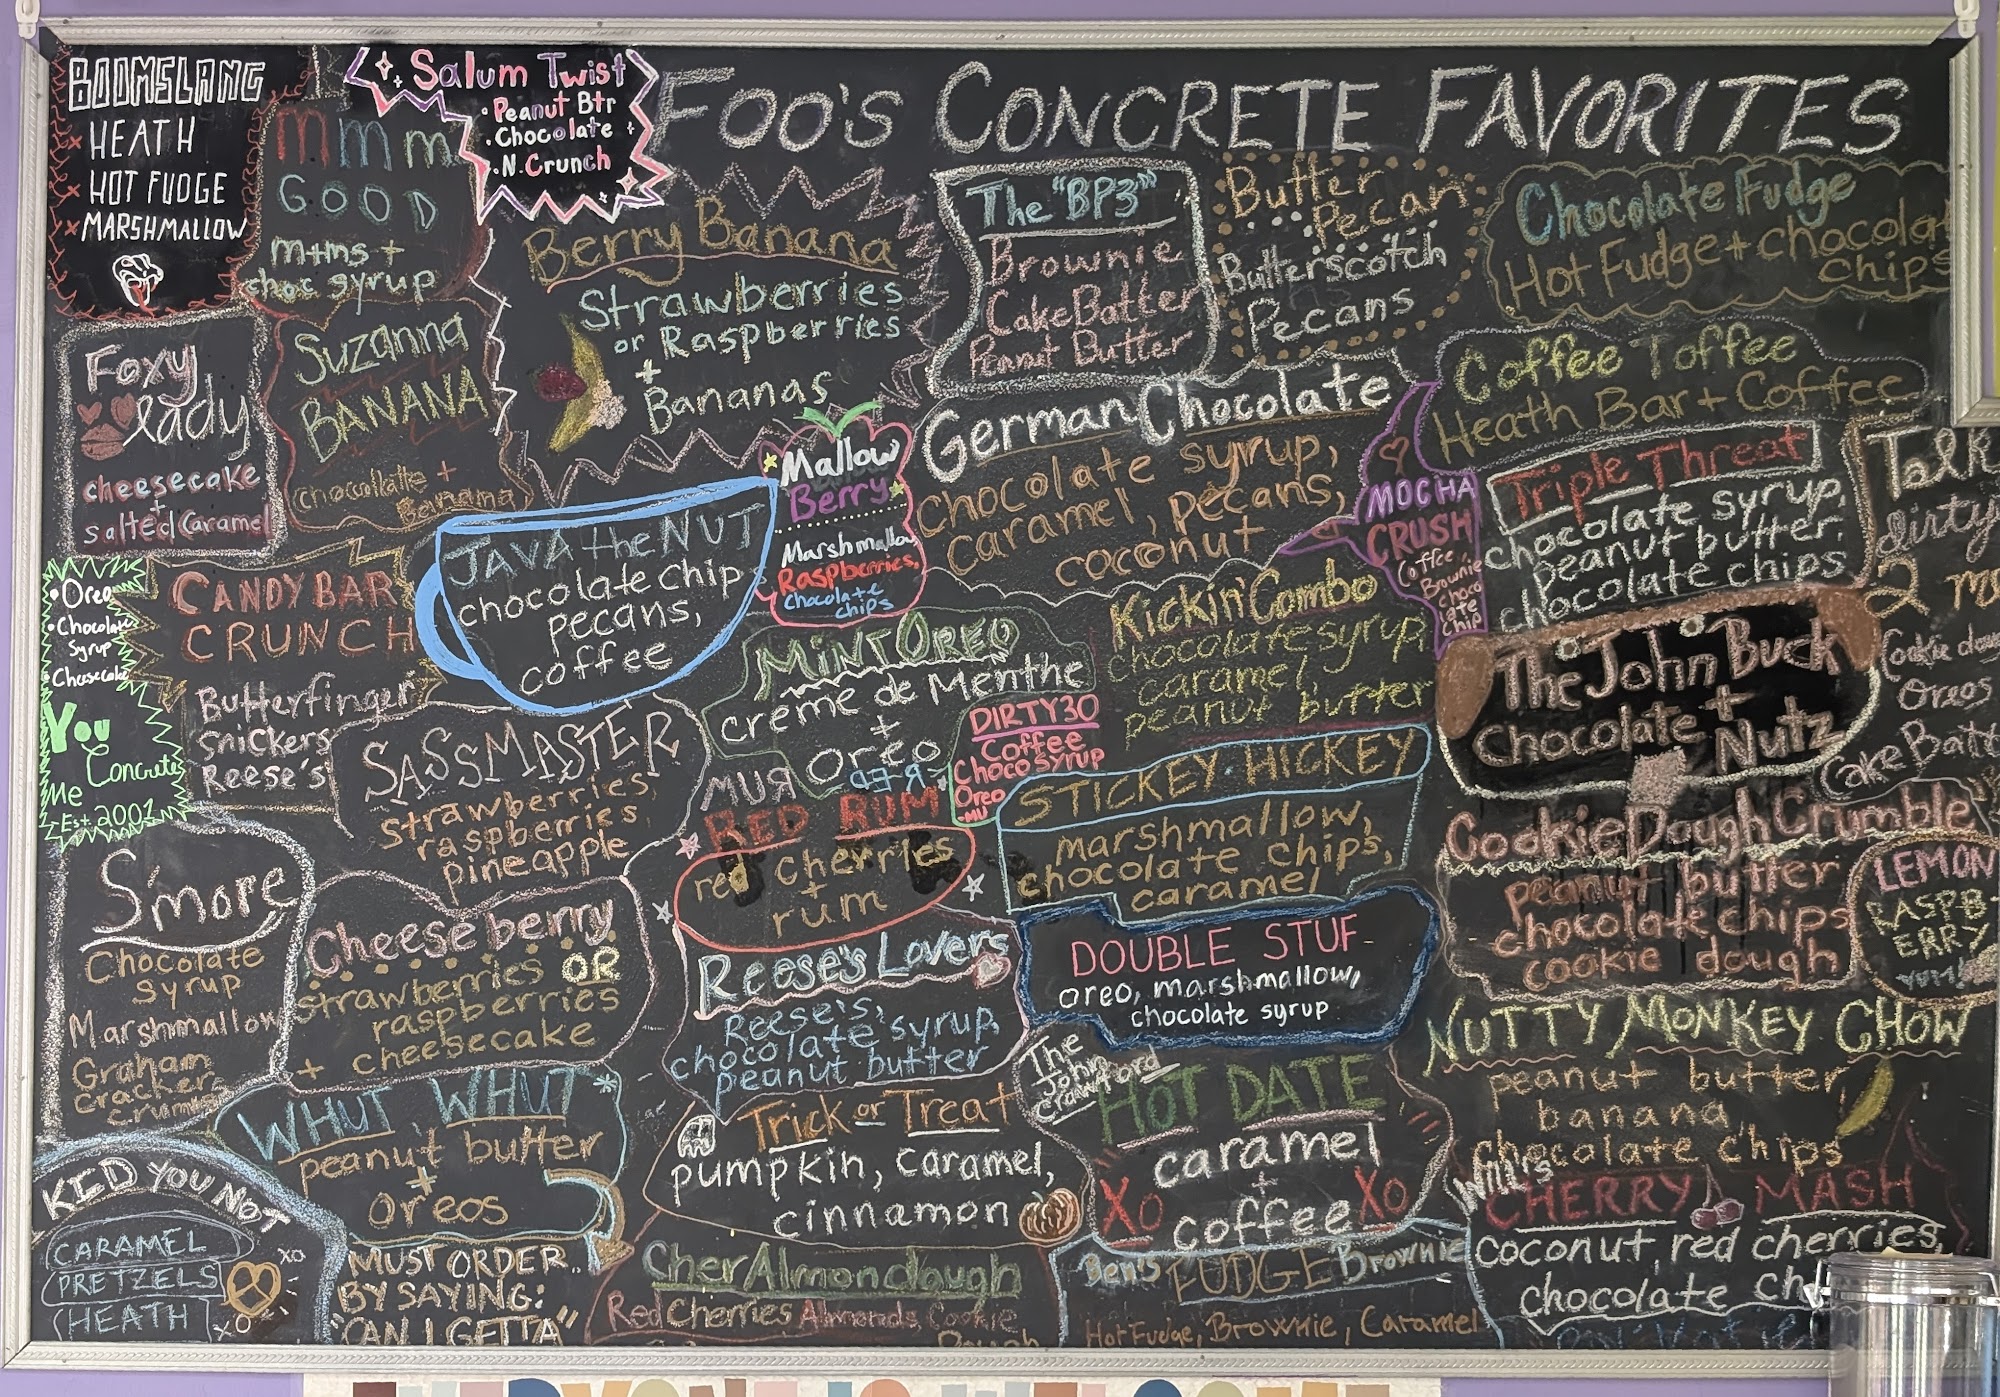 FOO'S CONCRETE FAVORITES
BOOMSLANG
x HEATH
x HOT FUDGE
x MARSHMALLOW
mmm
GOOD
m+ms +
choc syrup
Salum Twist
• Peanut Btr
• Chocolate
• N. Crunch
Berry Banana
Strawberries
or Raspberries
+
Bananas
The "BP3"
Brownie
Cake Batter
Peanut Butter
Butter
Pecan
Butterscotch
Pecans
Chocolate Fudge
Hot Fudge + chocolat
chips
Foxy
lady
cheesecake
+
salted Caramel
Suzanna
BANANA
chocollate +
Benana
Mallow
Berry
Marshmallow
Raspberries,
chocolate
chips
German Chocolate
chocolate syrup,
caramel, pecans,
coconut
Coffee Toffee
Heath Bar + Coffee
MOCHA
CRUSH
Coffee,
Brownie
choco
late
chip
Triple Threat
chocolate syrup,
peanut butter,
chocolate chips
Talk
dirty
2 m
Cookie dou
Oreos
Cake Batt
JAVA the NUT
chocolate chip
pecans,
coffee
• Oreo
• Chocolate
Syrup
• Cheesecake
You
Concrete
Me
-Est. 2001
CANDY BAR
CRUNCH
Butterfinger
Snickers
Reese's
MINT OREO
creme de Menthe
+
Oreo
Kickin' Combo
chocolate syrup,
caramel,
peanut butter
The John Buck
+
Chocolate Nutz
SASSMASTER
strawberries,
raspberries
pineapple
DIRTY 30
Coffee
Choco syrup
Oreo
-MU
MUR
RED RUM
red cherries
+
rum
STICKEY-HICKEY
marshmallow,
chocolate chips,
caramel
Cookie Dough Crumble
peanut butter
chocolate chips
cookie dough
LEMON
RASPB-
ERRY
S'more
Chocolate
syrup
Marshmallow
Graham
cracker
crumbs
Cheeseberry
strawberries OR
raspberries
+ cheesecake
Reese's Lovers
Reese's,
chocolate syrup,
peanut butter
DOUBLE STUF
oreo, marshmallow,
chocolate syrup
NUTTY MONKEY CHOW
peanut butter
banana
chocolate chips
WHUT WHUT*
peanut butter
+
oreos
MUST ORDER
BY SAYING:
"CAN I GETTA"
Trick or Treat
pumpkin, caramel,
cinnamon
The
John
Crawford
HOT DATE
caramel
+
coffee
XO XO
Will's
CHERRY MASH
coconut, red cherries,
chocolate ch
KID YOU NOT
CARAMEL
PRETZELS
HEATH
XO
XO
CherAlmondough
Red Cherries Almonds Cookie
Dough
Ben's FUDGE Brownie
Hot Fudge, Brownie, Caramel